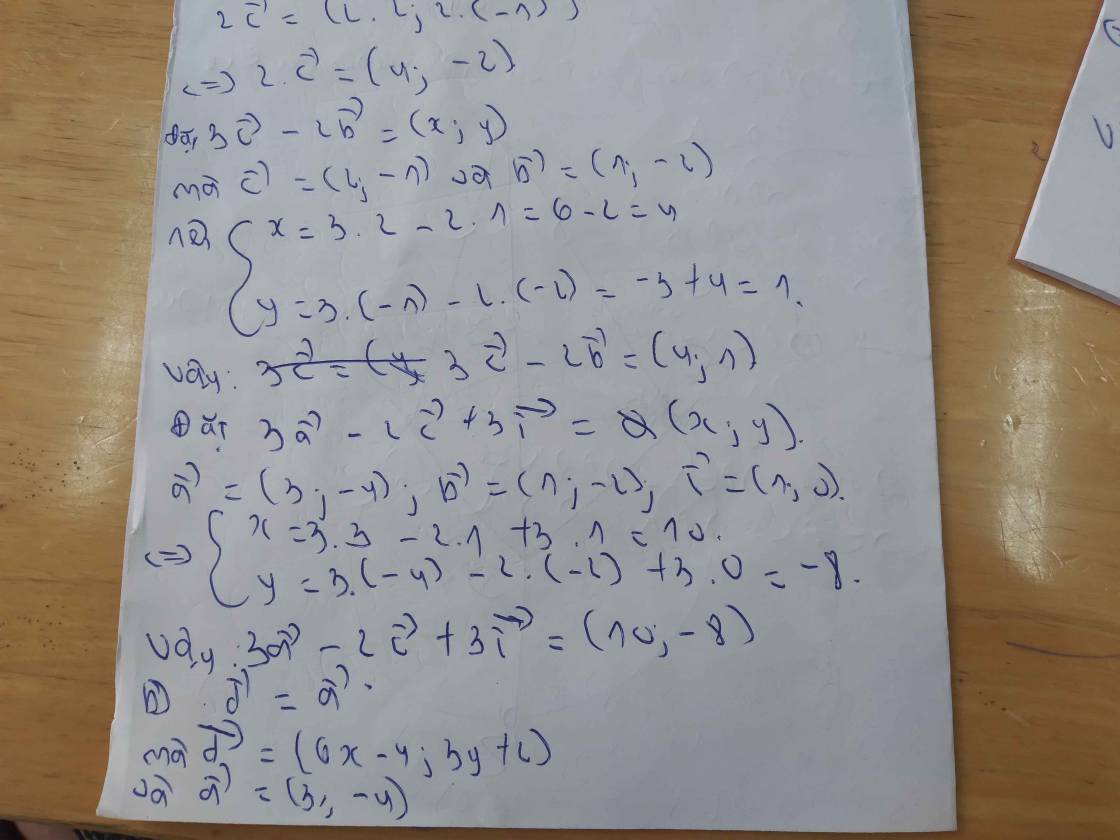 2c⃗ = (2.2; 2.(-1))
<=> 2.c⃗ = (4; -2)
Đặt 3c⃗ - 2b⃗ = (x; y)
mà c⃗ = (2; -1) và b⃗ = (1; -2)
nên { x = 3.2 - 2.1 = 6 - 2 = 4
y = 3.(-1) - 2.(-2) = -3 + 4 = 1.
Vậy: 3c⃗ = (4; 3c⃗ - 2b⃗ = (4; 1)
Đặt 3a⃗ - 2c⃗ + 3i⃗ = (x; y).
a⃗ = (3; -4); b⃗ = (1; -2); i⃗ = (1; 0).
<=> { x = 3.3 - 2.1 + 3.1 = 10.
y = 3.(-4) - 2.(-2) + 3.0 = -8.
Vậy: 3a⃗ - 2c⃗ + 3i⃗ = (10; -8)
b) d⃗ = a⃗.
mà d⃗ = (6x - 4; 3y + 2)
và a⃗ = (3; -4)